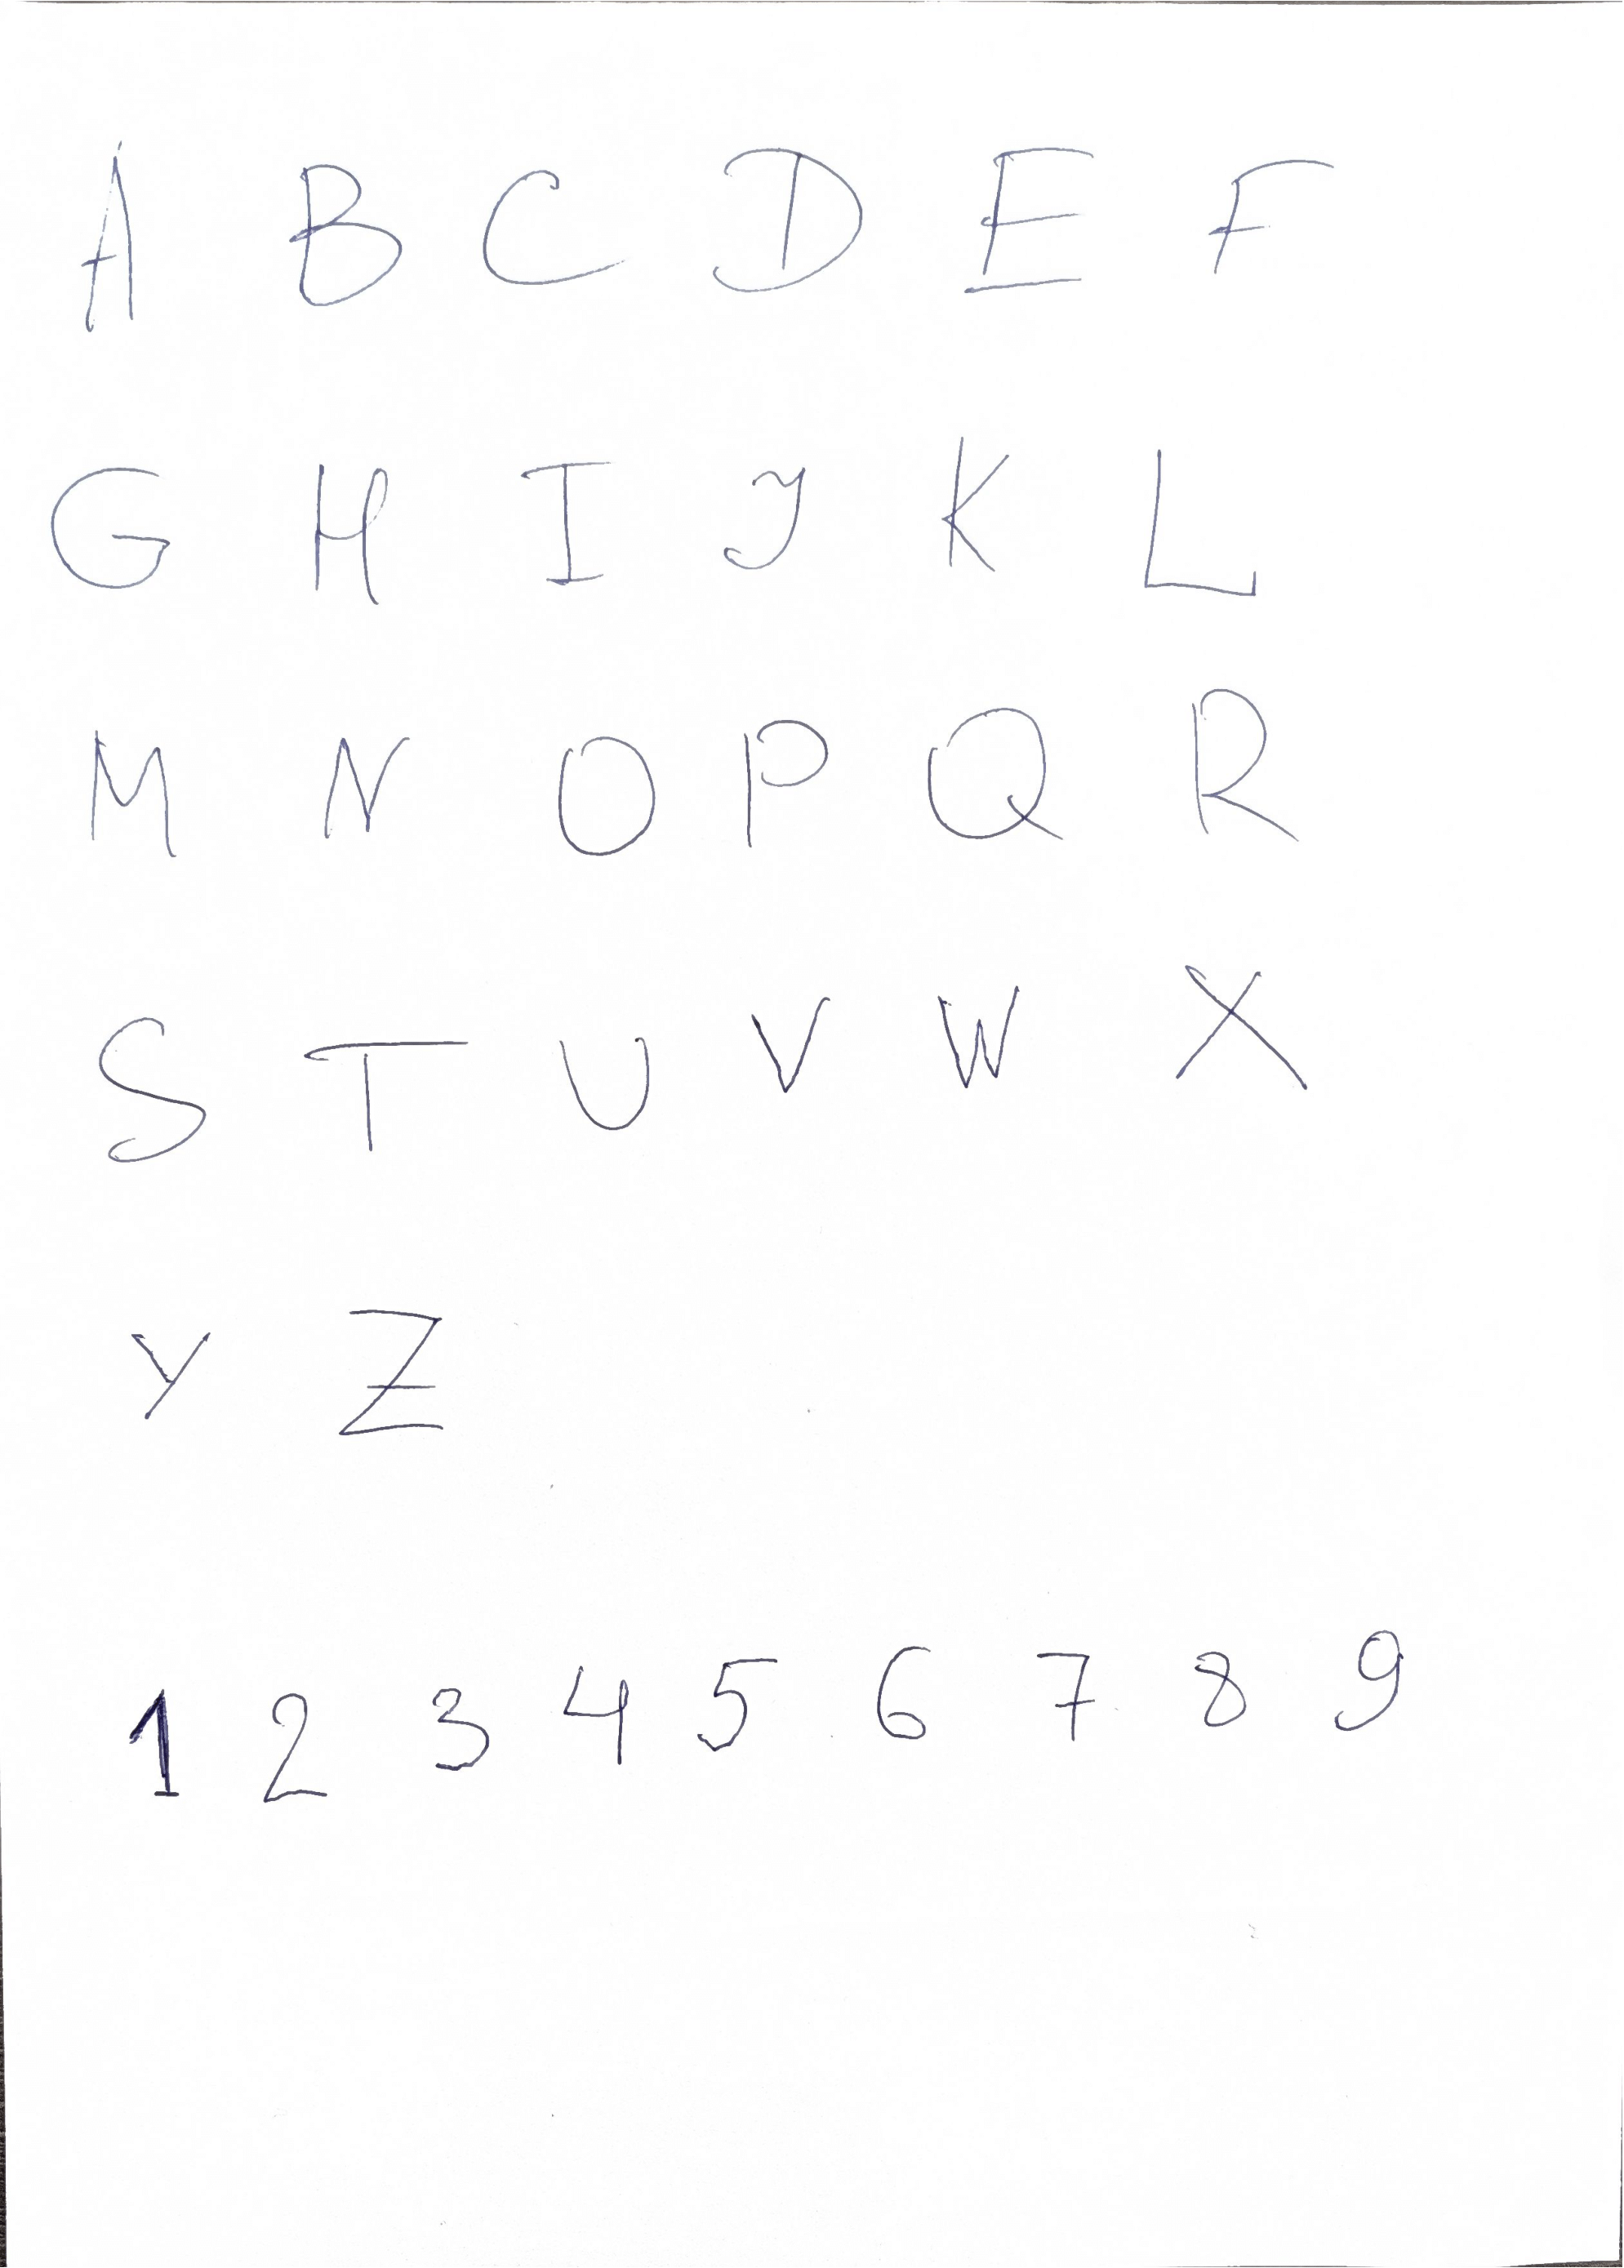 A B C D E F
G H I J K L
M N O P Q R
S T U V W X
Y Z
1 2 3 4 5 6 7 8 9